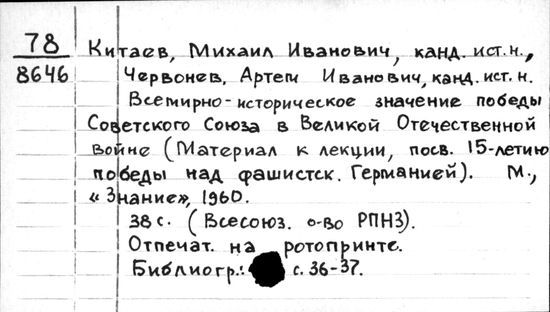 78
8646
Китаев, Михаил Иванович, канд. ист. н.,
Червонев, Артем Иванович, канд. ист. н.
Всемирно-историческое значение победы
Советского Союза в Великой Отечественной
войне (Материал к лекции, посв. 15-летию
победы над фашистск. Германией). М.,
«Знание», 1960.
38 с. (Всесоюз. о-во РПНЗ).
Отпечат. на ротопринте.
Библиогр.: с. 36-37.